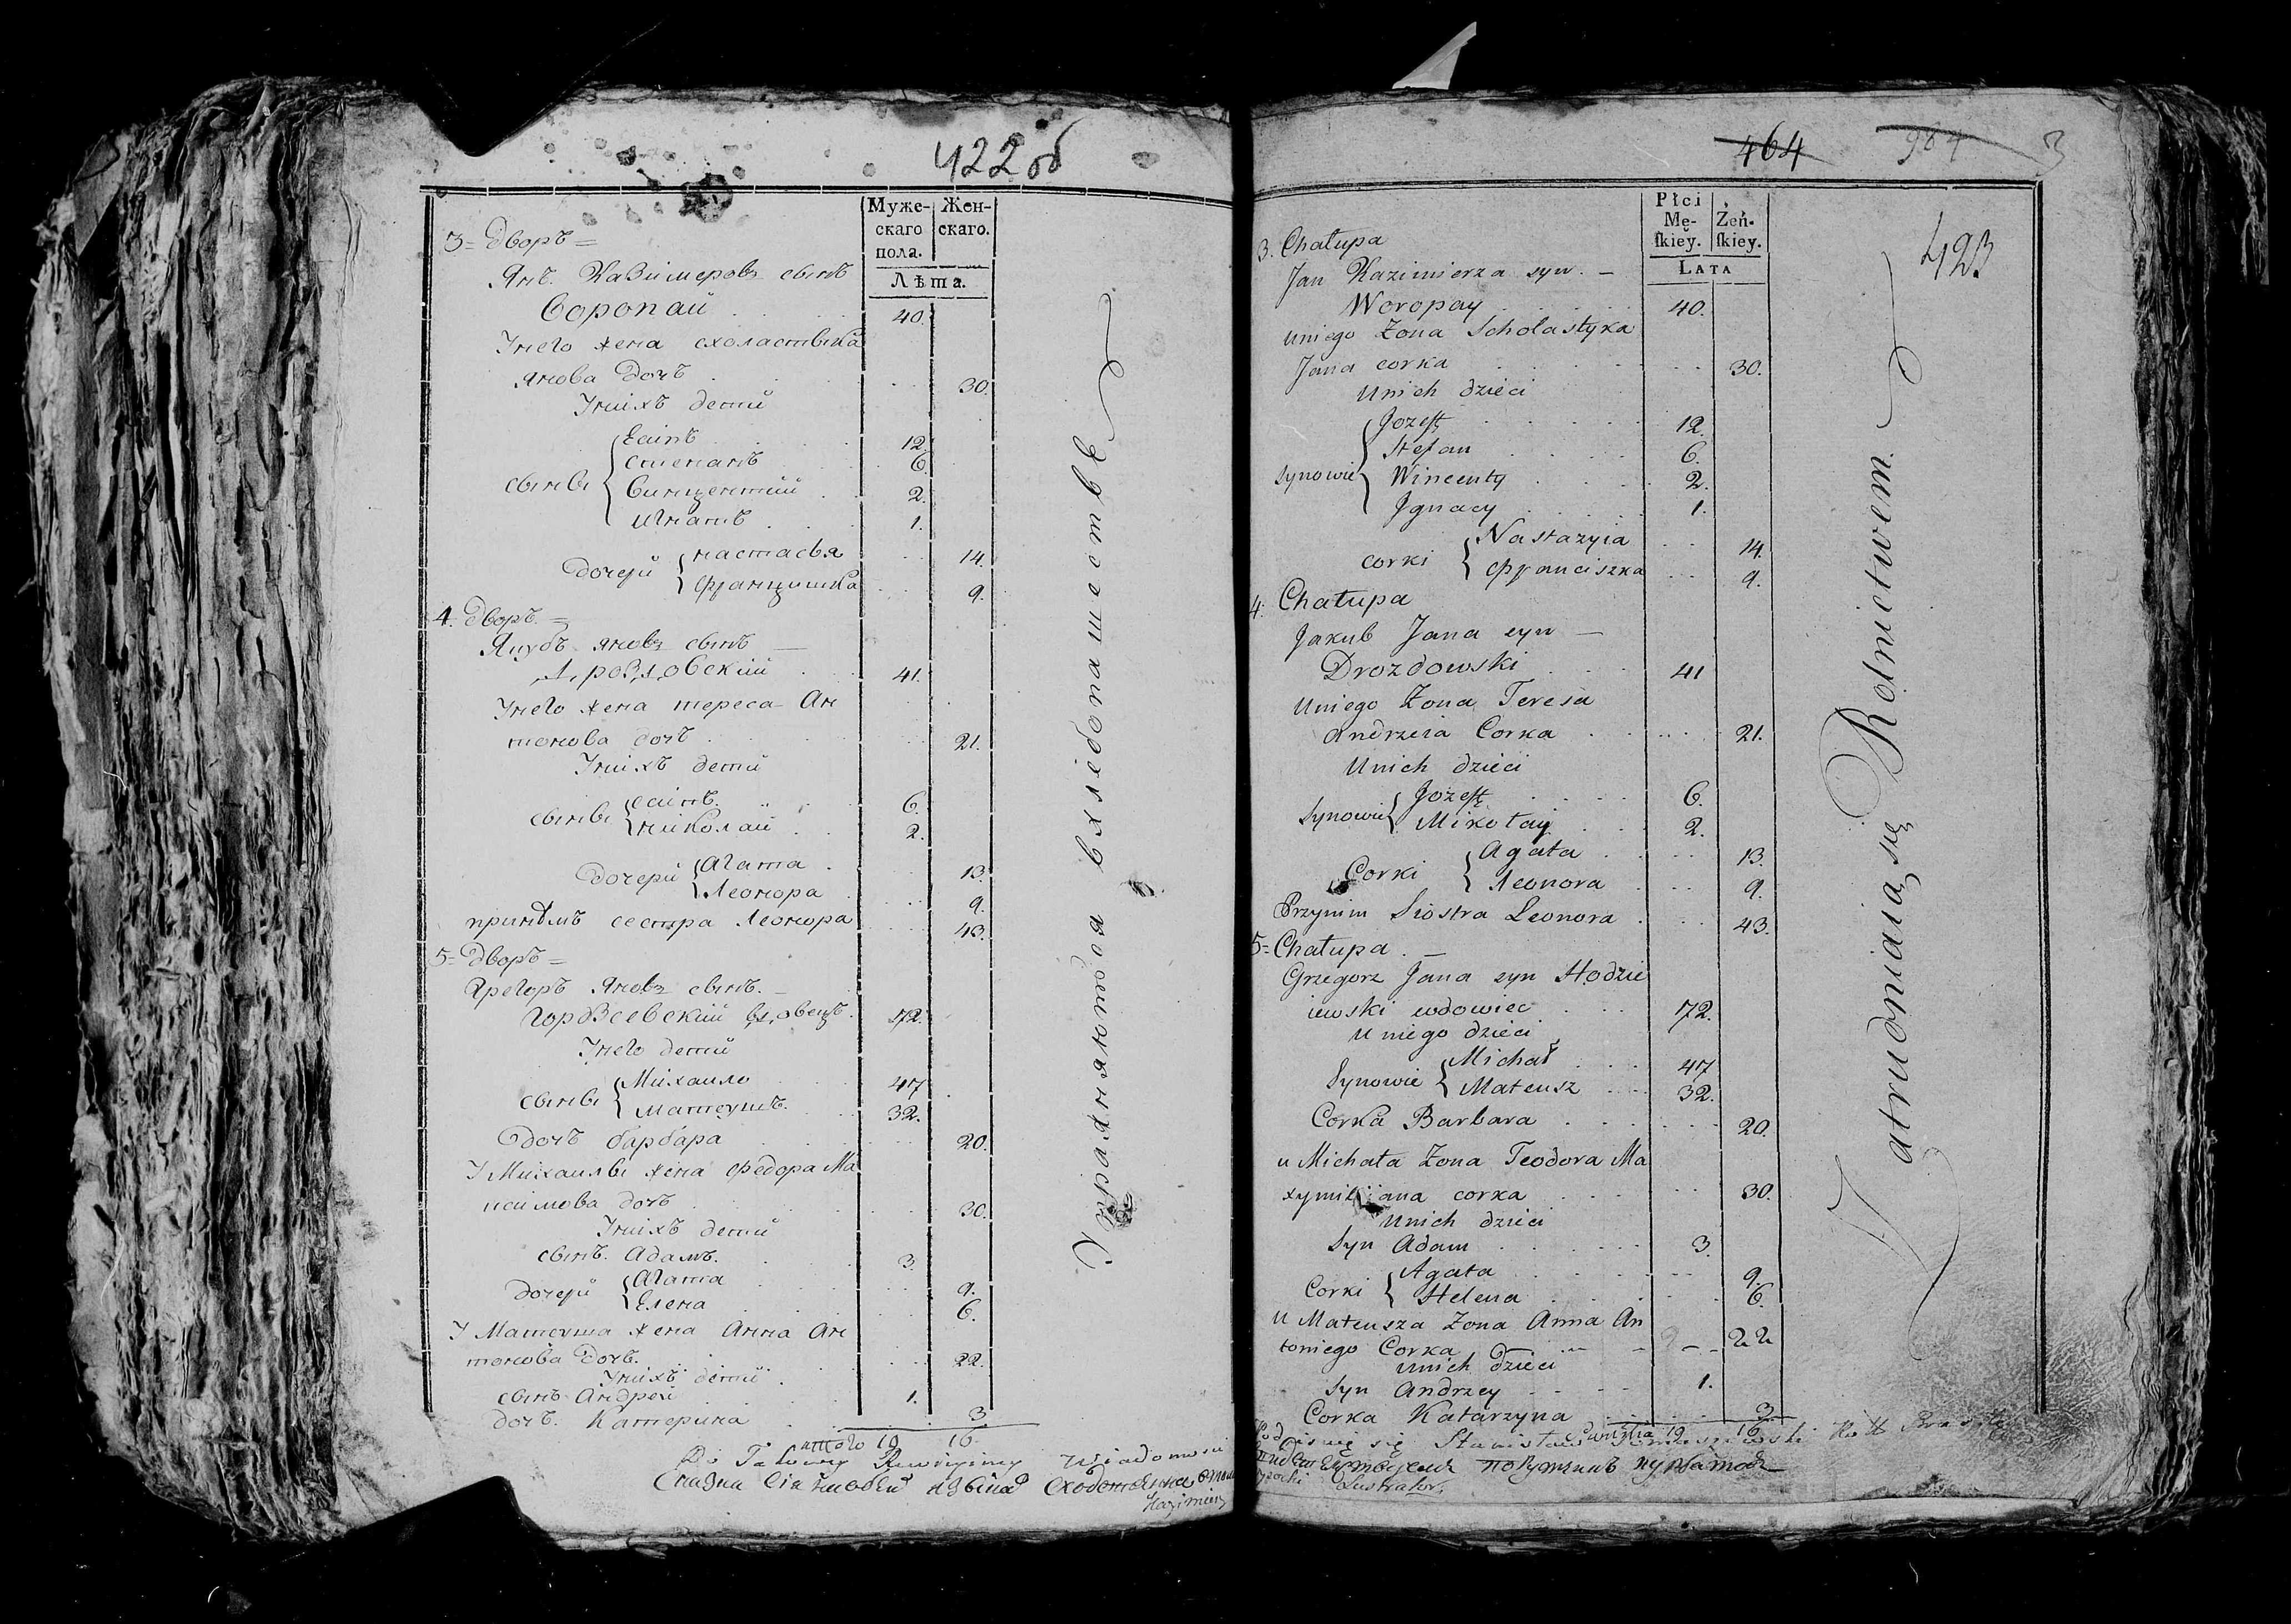 422 об
Муже-
скаго
пола.
Жен-
скаго.
Лѣта.
3= Дворъ =
Янъ Казимеровъ сынъ
Воропай 40.
У него жена схоластыка
янова дочь 30.
У нихъ дети
сыны
Есипъ 12.
степанъ 6.
Винцентий 2.
игнатъ 1.
дочери
настасья 14.
францишка 9.
4. Дворъ =
Якубъ яновъ сынъ —
Дроздовский 41.
У него жена тереса Ан
тонова дочь 21.
У нихъ дети
сыны
есипъ 6.
николай 2.
дочери
Агата 13.
Леонора 9.
сестра Леонора 43.
5= Дворъ =
Грегоръ Яновъ сынъ —
вдовецъ 72.
У него дети
сыны
Михайло 47.
Матеушъ 32.
дочь барбара 20.
У Михайлы жена федора Ма
дочь 30.
У нихъ дети
сынъ Адамъ 3.
дочери
Агата 9.
Елена 6.
У Матеуша жена Анна Ан
тонова дочь 22.
У нихъ дети
сынъ Андрей 1.
дочь Катерина 3
итого 19 16.
Упражняются в хлебопашестве
Do Takowey wiadomosci
Kazimierz
464
423
Płci
Mę-
ſkiey.
Żeń-
ſkiey.
Lata
3. Chałupa
Jan Kazimierza syn —
Woropay 40.
u niego Żona Scholastyka
Jana corka 30.
U nich dzieci
Synowie
Jozeff 12.
Stefan 6.
Wincenty 2.
Ignacy 1.
corki
Nastazyia 14.
franciszka 9.
4. Chałupa
Jakub Jana syn —
Drozdowski 41
U niego Żona Teresa
Andrzeia Corka 21.
U nich dzieci
Synowie
Jozeff 6.
Mikołay 2.
Corki
Agata 13.
Leonora 9.
Przynim Siostra Leonora 43.
5= Chałupa —
Grzegorz Jana syn Hodzie
iewski wdowiec 72.
U niego dzieci
Synowie
Michał 47
Mateusz 32.
Corka Barbara 20.
u Michała Żona Teodora Ma
xymiliana corka 30.
U nich dzieci
Syn Adam 3.
Corki
Agata 9.
Helena 6.
U Mateusza Żona Anna An
toniego Corka 22
U nich dzieci
Syn Andrzey 1.
Corka Katarzyna 3
19 16.
Zatrudniaią się Rolnictwem.
się Stanisław
Lustrator.